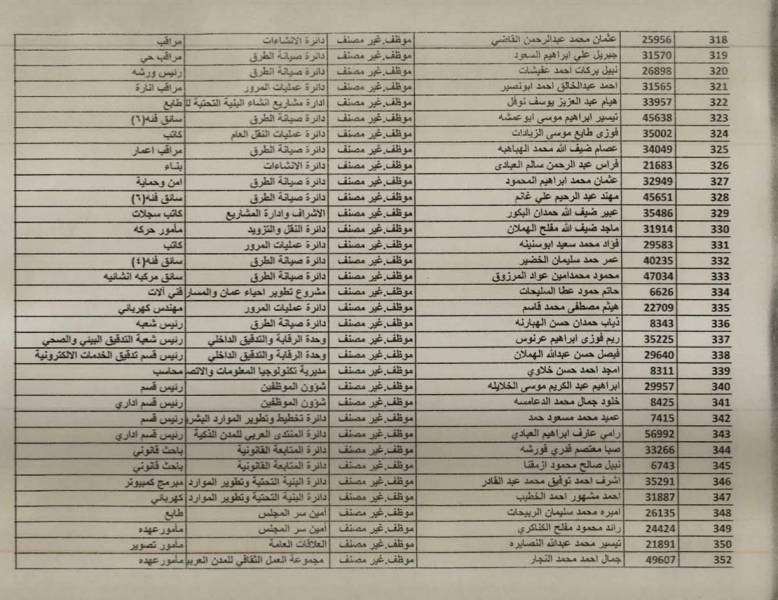 318 25956 عثمان محمد عبدالرحمن القاضي موظف.غير مصنف دائرة الانشاءات مراقب
319 31570 جبريل علي ابراهيم السعود موظف.غير مصنف دائرة صيانة الطرق مراقب حي
320 26898 نبيل بركات احمد عفيشات موظف.غير مصنف دائرة صيانة الطرق رئيس ورشه
321 31565 احمد عبدالخالق احمد ابونصير موظف.غير مصنف دائرة عمليات المرور مراقب انارة
322 33957 هيام عبد العزيز يوسف نوفل موظف.غير مصنف ادارة مشاريع انشاء البنية التحتية لل طابع
323 45638 تيسير ابراهيم موسى ابوعمشه موظف.غير مصنف دائرة صيانة الطرق سائق فئه(٦)
324 35002 فوزي طايع موسى الزيادات موظف.غير مصنف دائرة عمليات النقل العام كاتب
325 34049 عصام ضيف الله محمد الهباهبه موظف.غير مصنف دائرة صيانة الطرق مراقب اعمار
326 21683 فراس عبد الرحمن سالم العبادي موظف.غير مصنف دائرة الانشاءات بناء
327 32949 عثمان محمد ابراهيم المحمود موظف.غير مصنف دائرة صيانة الطرق امن وحماية
328 45651 مهند عبد الرحيم علي غانم موظف.غير مصنف دائرة صيانة الطرق سائق فئه(٦)
329 35486 عبير ضيف الله حمدان البكور موظف.غير مصنف الاشراف وادارة المشاريع كاتب سجلات
330 31914 ماجد ضيف الله مفلح الهملان موظف.غير مصنف دائرة النقل والتزويد مأمور حركه
331 29583 فؤاد محمد سعيد ابوسنينه موظف.غير مصنف دائرة عمليات المرور كاتب
332 40235 عمر حمد سليمان الخضير موظف.غير مصنف دائرة صيانة الطرق سائق فئه(٤)
333 47034 محمود محمدامين عواد المرزوق موظف.غير مصنف دائرة صيانة الطرق سائق مركبه انشائيه
334 6626 حاتم حمود عطا السليحات موظف.غير مصنف مشروع تطوير احياء عمان والمسار فني آلات
335 22709 هيثم مصطفى محمد قاسم موظف.غير مصنف دائرة عمليات المرور مهندس كهربائي
336 8343 ذياب حمدان حسن الهبارنه موظف.غير مصنف دائرة صيانة الطرق رئيس شعبه
337 35225 ريم فوزي ابراهيم عرنوس موظف.غير مصنف وحدة الرقابة والتدقيق الداخلي رئيس شعبة التدقيق البيئي والصحي
338 29640 فيصل حسن عبدالله الهملان موظف.غير مصنف وحدة الرقابة والتدقيق الداخلي رئيس قسم تدقيق الخدمات الالكترونية
339 8311 امجد احمد حسن خلاوي موظف.غير مصنف مديرية تكنولوجيا المعلومات والاتص محاسب
340 29957 ابراهيم عبد الكريم موسى الخلايله موظف.غير مصنف شؤون الموظفين رئيس قسم
341 8425 خلود جمال محمد الدعامسه موظف.غير مصنف شؤون الموظفين رئيس قسم اداري
342 7415 عميد محمد مسعود حمد موظف.غير مصنف دائرة تخطيط وتطوير الموارد البشر رئيس قسم
343 56992 رامي عارف ابراهيم العبادي موظف.غير مصنف دائرة المنتدى العربي للمدن الذكية رئيس قسم اداري
344 33266 صبا معتصم قدري قورشه موظف.غير مصنف دائرة المتابعة القانونية باحث قانوني
345 6743 نبيل صالح محمود ازمقنا موظف.غير مصنف دائرة المتابعة القانونية باحث قانوني
346 35291 اشرف احمد توفيق محمد عبد القادر موظف.غير مصنف دائرة البنية التحتية وتطوير الموارد مبرمج كمبيوتر
347 31887 احمد مشهور احمد الخطيب موظف.غير مصنف دائرة البنية التحتية وتطوير الموارد كهربائي
348 26135 اميره محمد سليمان الربيحات موظف.غير مصنف أمين سر المجلس طابع
349 24424 رائد محمود مفلح الكناكري موظف.غير مصنف أمين سر المجلس مأمورعهده
350 21891 تيسير محمد عبدالله النصايره موظف.غير مصنف العلاقات العامة مأمور تصوير
352 49607 جمال احمد محمد النجار موظف.غير مصنف مجموعة العمل الثقافي للمدن العربي مأمورعهده